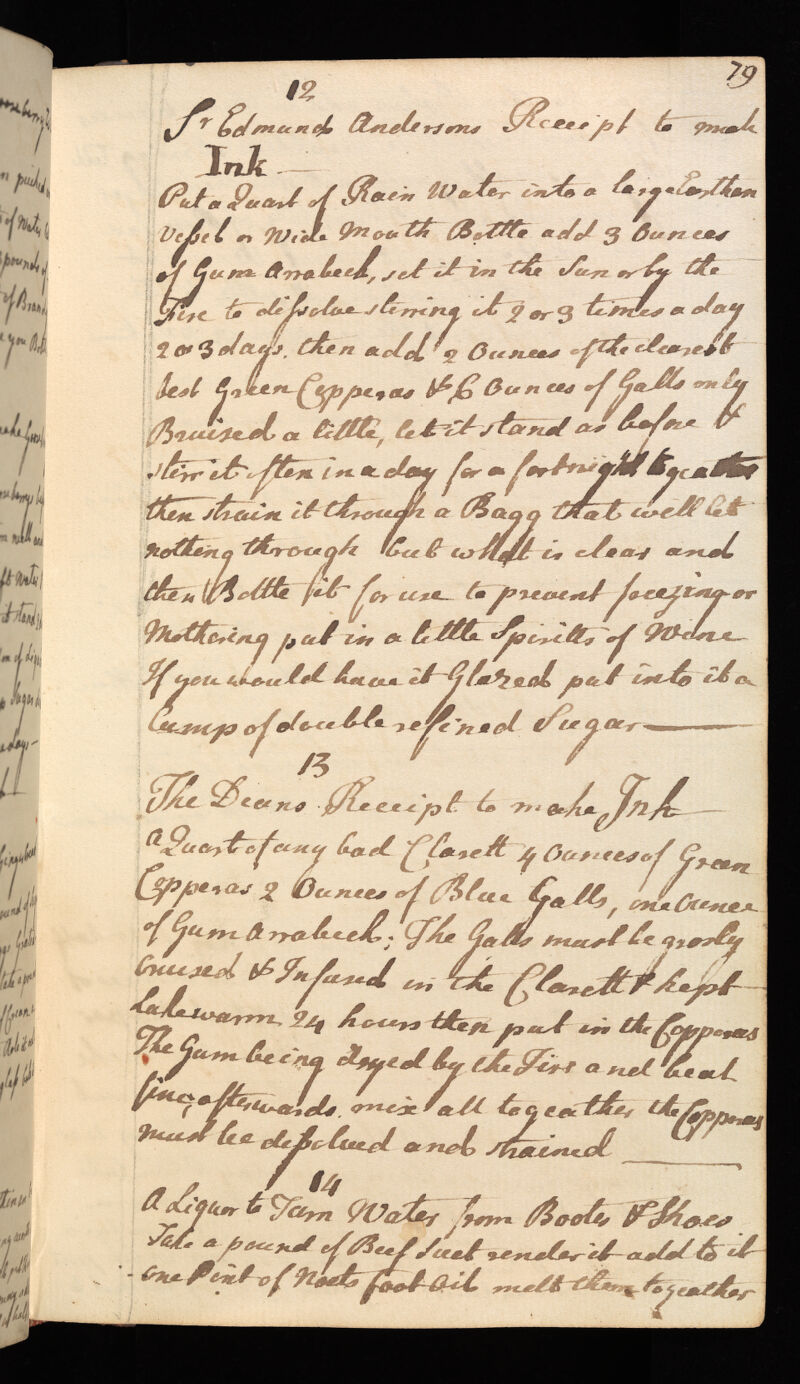 79
12
Sr Edmunds Andersons Receipt to make
Ink
Put a Quart of Rain Water into a large Earthen
Vessel or Wide Mouth Bottle add 3 Ounces
of Gum Arrabeck, set it in the Sun or by the
Fire to dissolve stirring it 2 or 3 times a day
2 or 3 days. then add 2 Ounces of the clearest
best Green Copperas & 6 Ounces of Galls only
Bruised a little, let it stand as before &
stirr it often in a day for a fortnight togeather
then strain it through a Bagg that will let
nothing through but what is clear and
then Bottle it for use to prevent freezing or
Mothering put in a little Spiritts of Wine
If you would have it Glazed put into it a
Lump of double refined Sugar
13
The Deans Receipt to make Ink
A Quart of any bad Clarett 4 Ounces of Green
Copperas 2 Ounces of Blue Galls, one Ounce
of Gum Arrabeck; The Galls must be grosly
bruised & Infused in the Clarett & kept
Lukewarm 24 hours then put in the Copperas
The Gum being dryed by the Fire and beat
fine; afterwards mix all togeather the Copperas
must be dissolved and strained
14
A Liquor to Turn Water from Bootes & Shoes
Take a pound of Beef Suet render it add to it
one Pint of Neats foot Oil melt them togeather